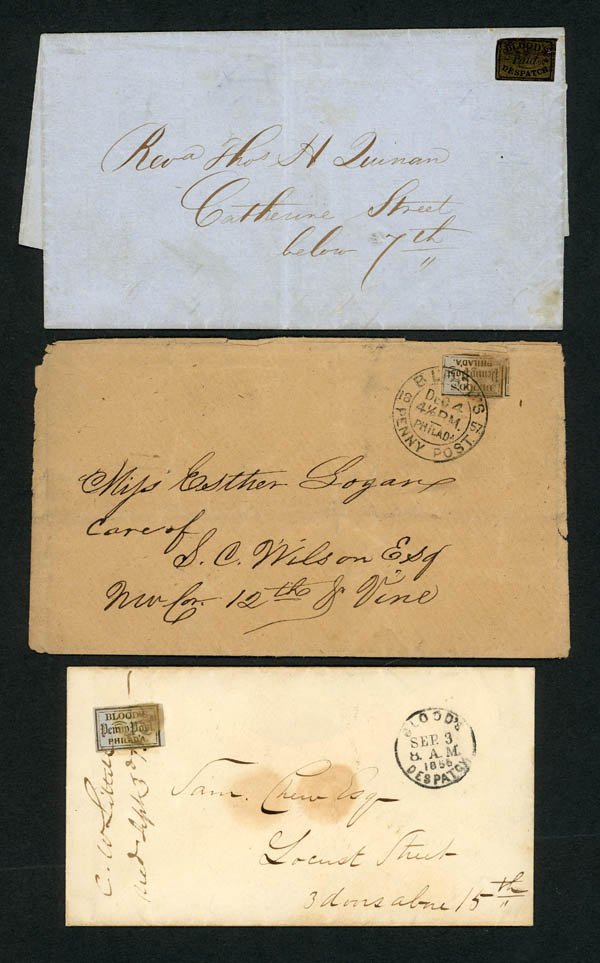 BLOOD'S
Paid
DESPATCH
Revd Thos H Quinan
Catherine Street
below 7th
BLOOD'S
Penny Post
PHILADA.
BLOOD'S
18 DEC 4 57
4½ P.M.
PHILADA
PENNY POST.
Miss Esther Logan
Care of
S. C. Wilson Esq
NW Cor. 12th & Vine
BLOOD'S
Penny Post
PHILAD'A
BLOOD'S
SEP. 3
8 A.M.
1856
DESPATCH
C. W. Littell
Recd Sept 3d
Sam. Chew Esq
Locust Street
3 doors above 15th